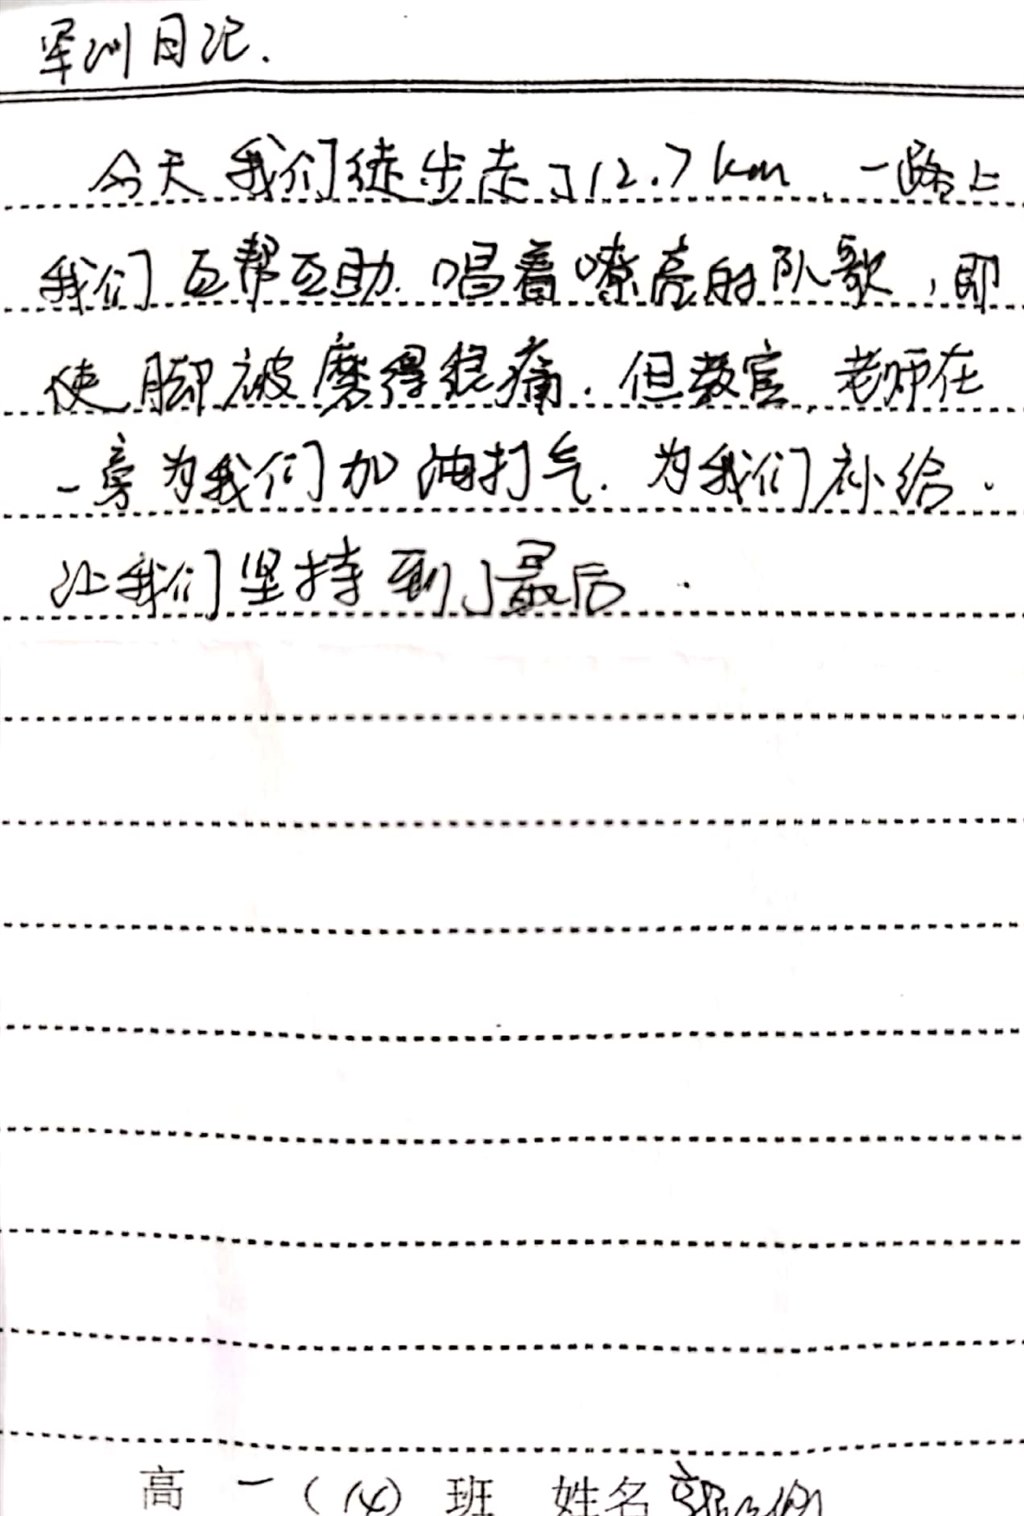 军训日记.
今天我们徒步走了12.7km,一路上
我们互帮互助.唱着嘹亮的队歌,即
使脚被磨得很痛.但教官,老师在
一旁为我们加油打气.为我们补给.
让我们坚持到了最后.
高一(14)班 姓名郭